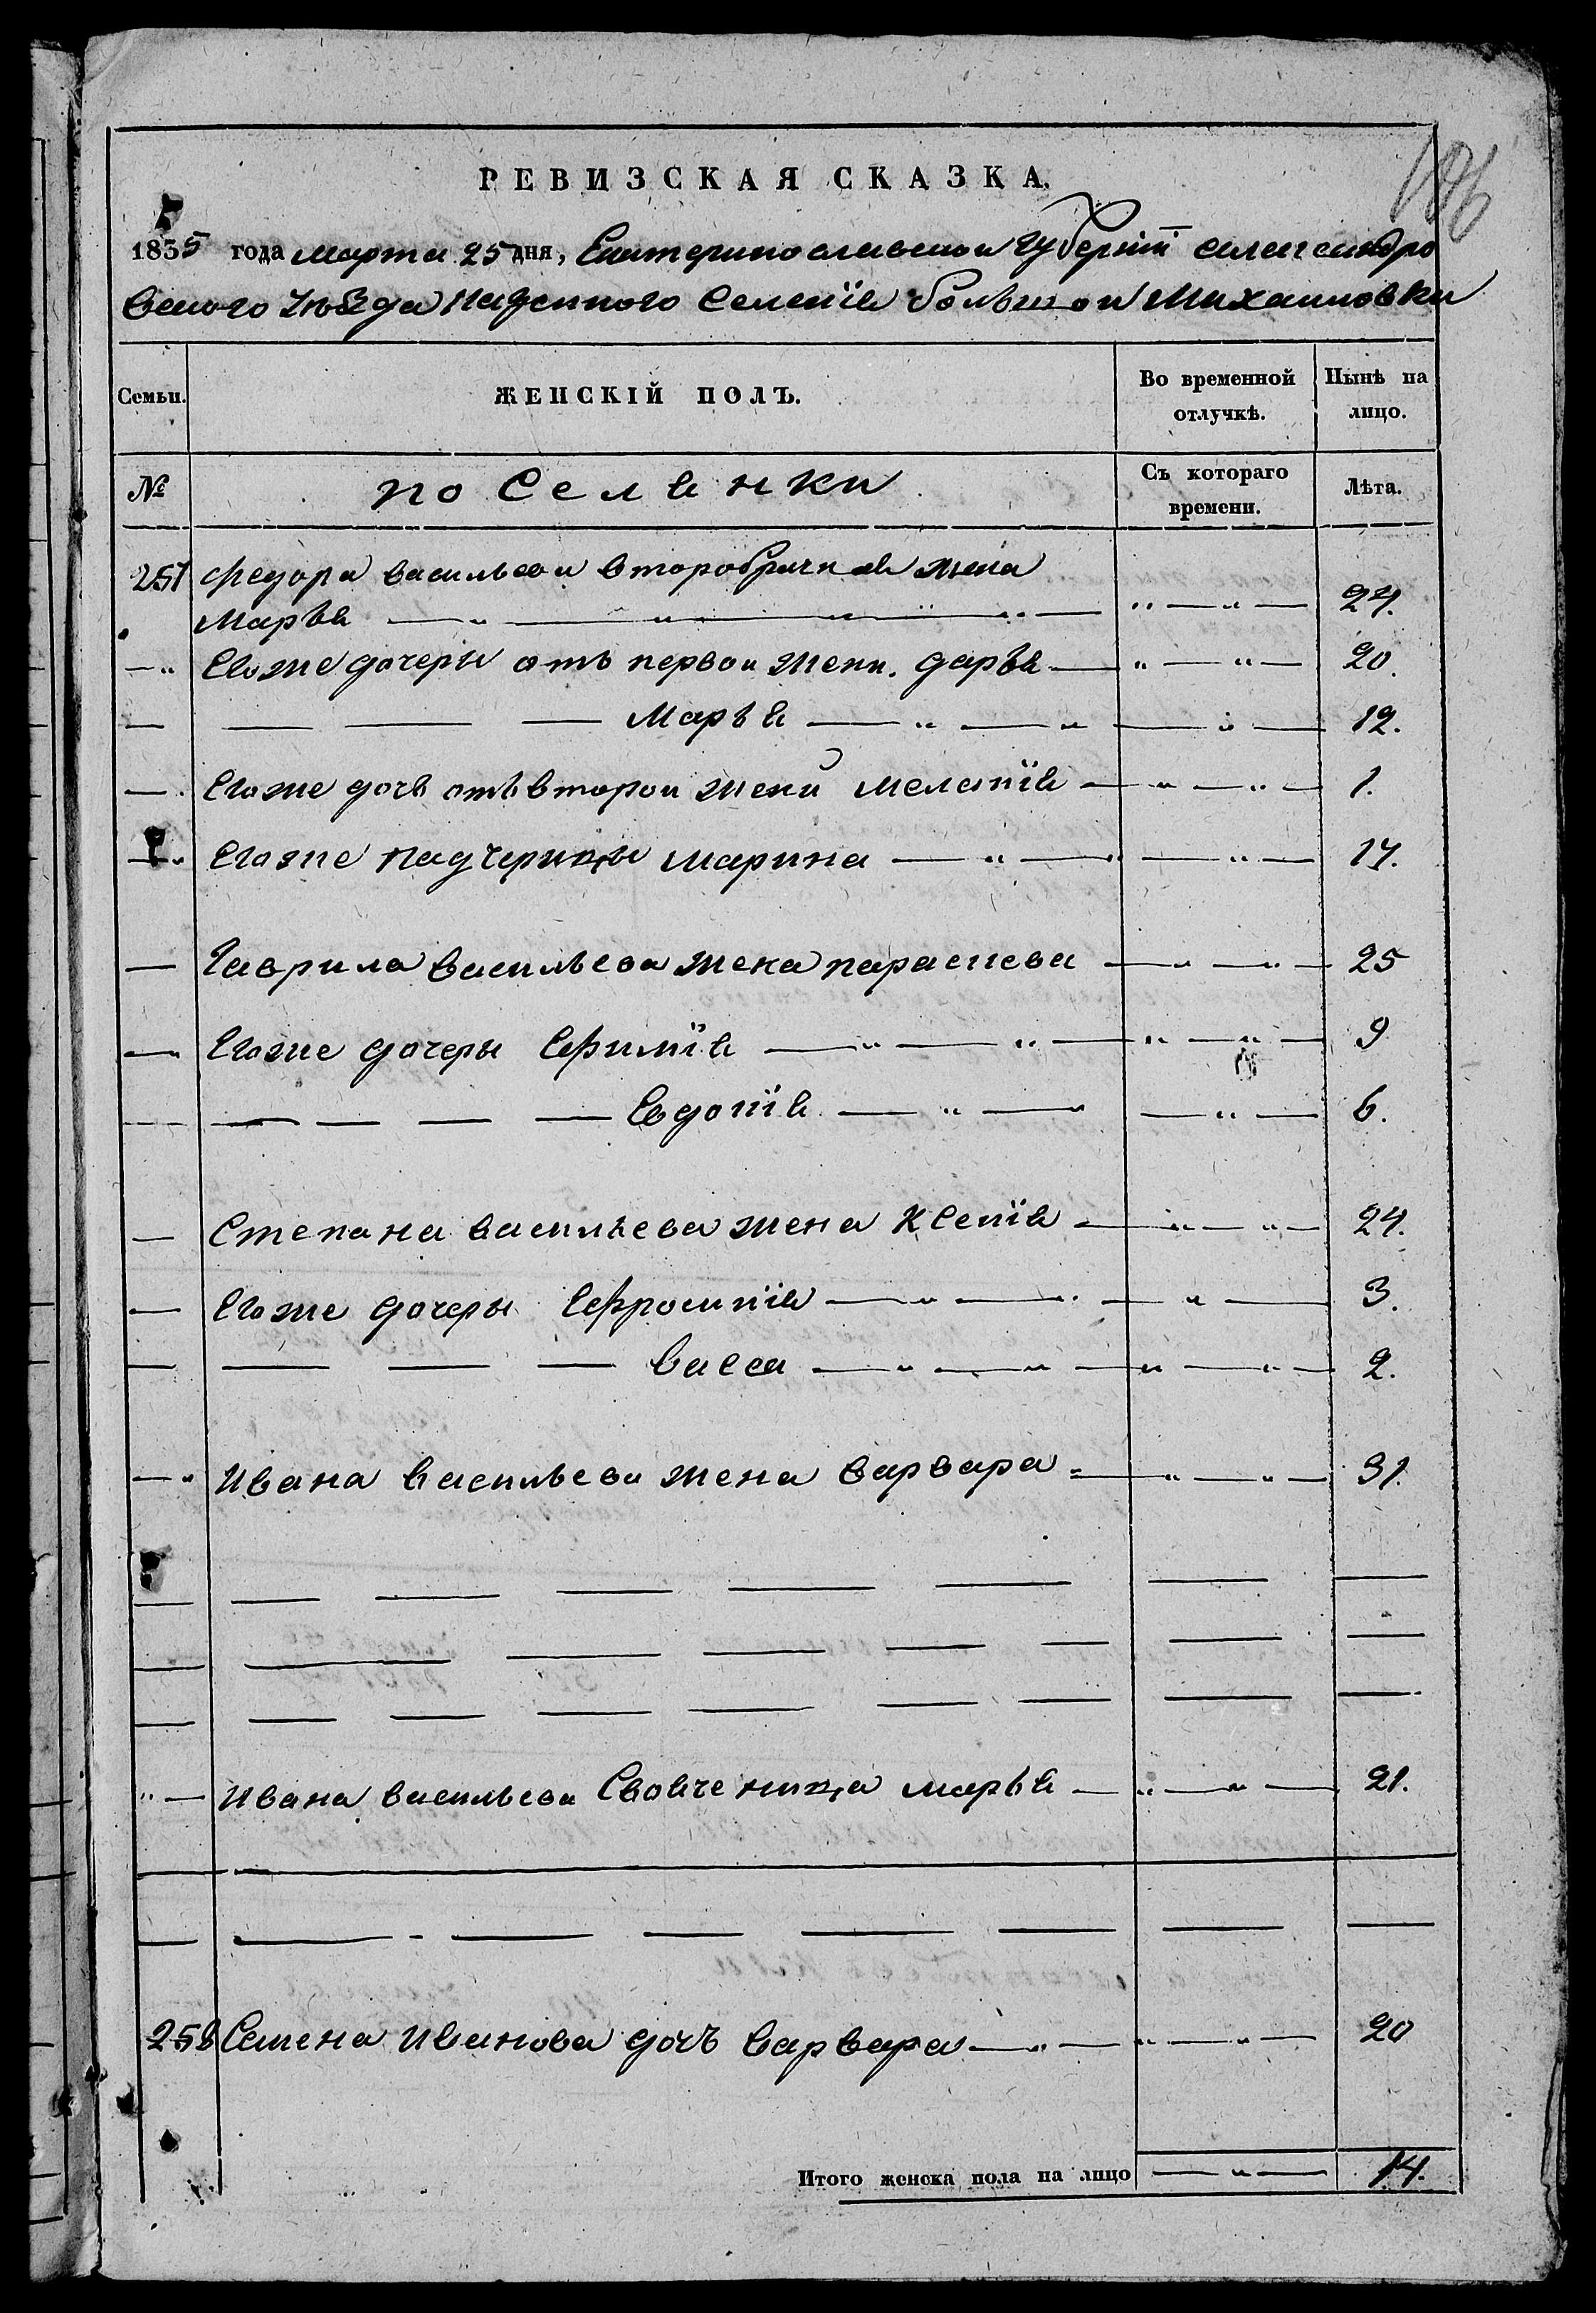 РЕВИЗСКАЯ СКАЗКА.
1835 года марта 25 дня, Екатеринославской губернїи александро
вского уѣзда казенного селенїя большой Михаиловки
Семьи. ЖЕНСКІЙ ПОЛЪ. Во временной отлучкѣ. Нынѣ на лицо.
№ поселянки Съ котораго времени. Лѣта.
257 Федора васильева второбрачная жена
Марья 27.
Егоже дочеры отъ первои жены. дарья 20.
Марья 12.
Егоже дочь отъ второи жены меланїя 1.
Егоже падчерицы марина 17.
Гаврила васильева жена параскева 25
Егоже дочеры Ефимїя 9
Евдокїя 6.
Степана васильева жена Ксенїя 24.
Егоже дочеры Ефросинїя 3.
васса 2.
Ивана васильева жена варвара 31.
Ивана васильева Своячница марья 21.
258 Семена Иванова дочь варвара 20
Итого женска пола на лицо 14.